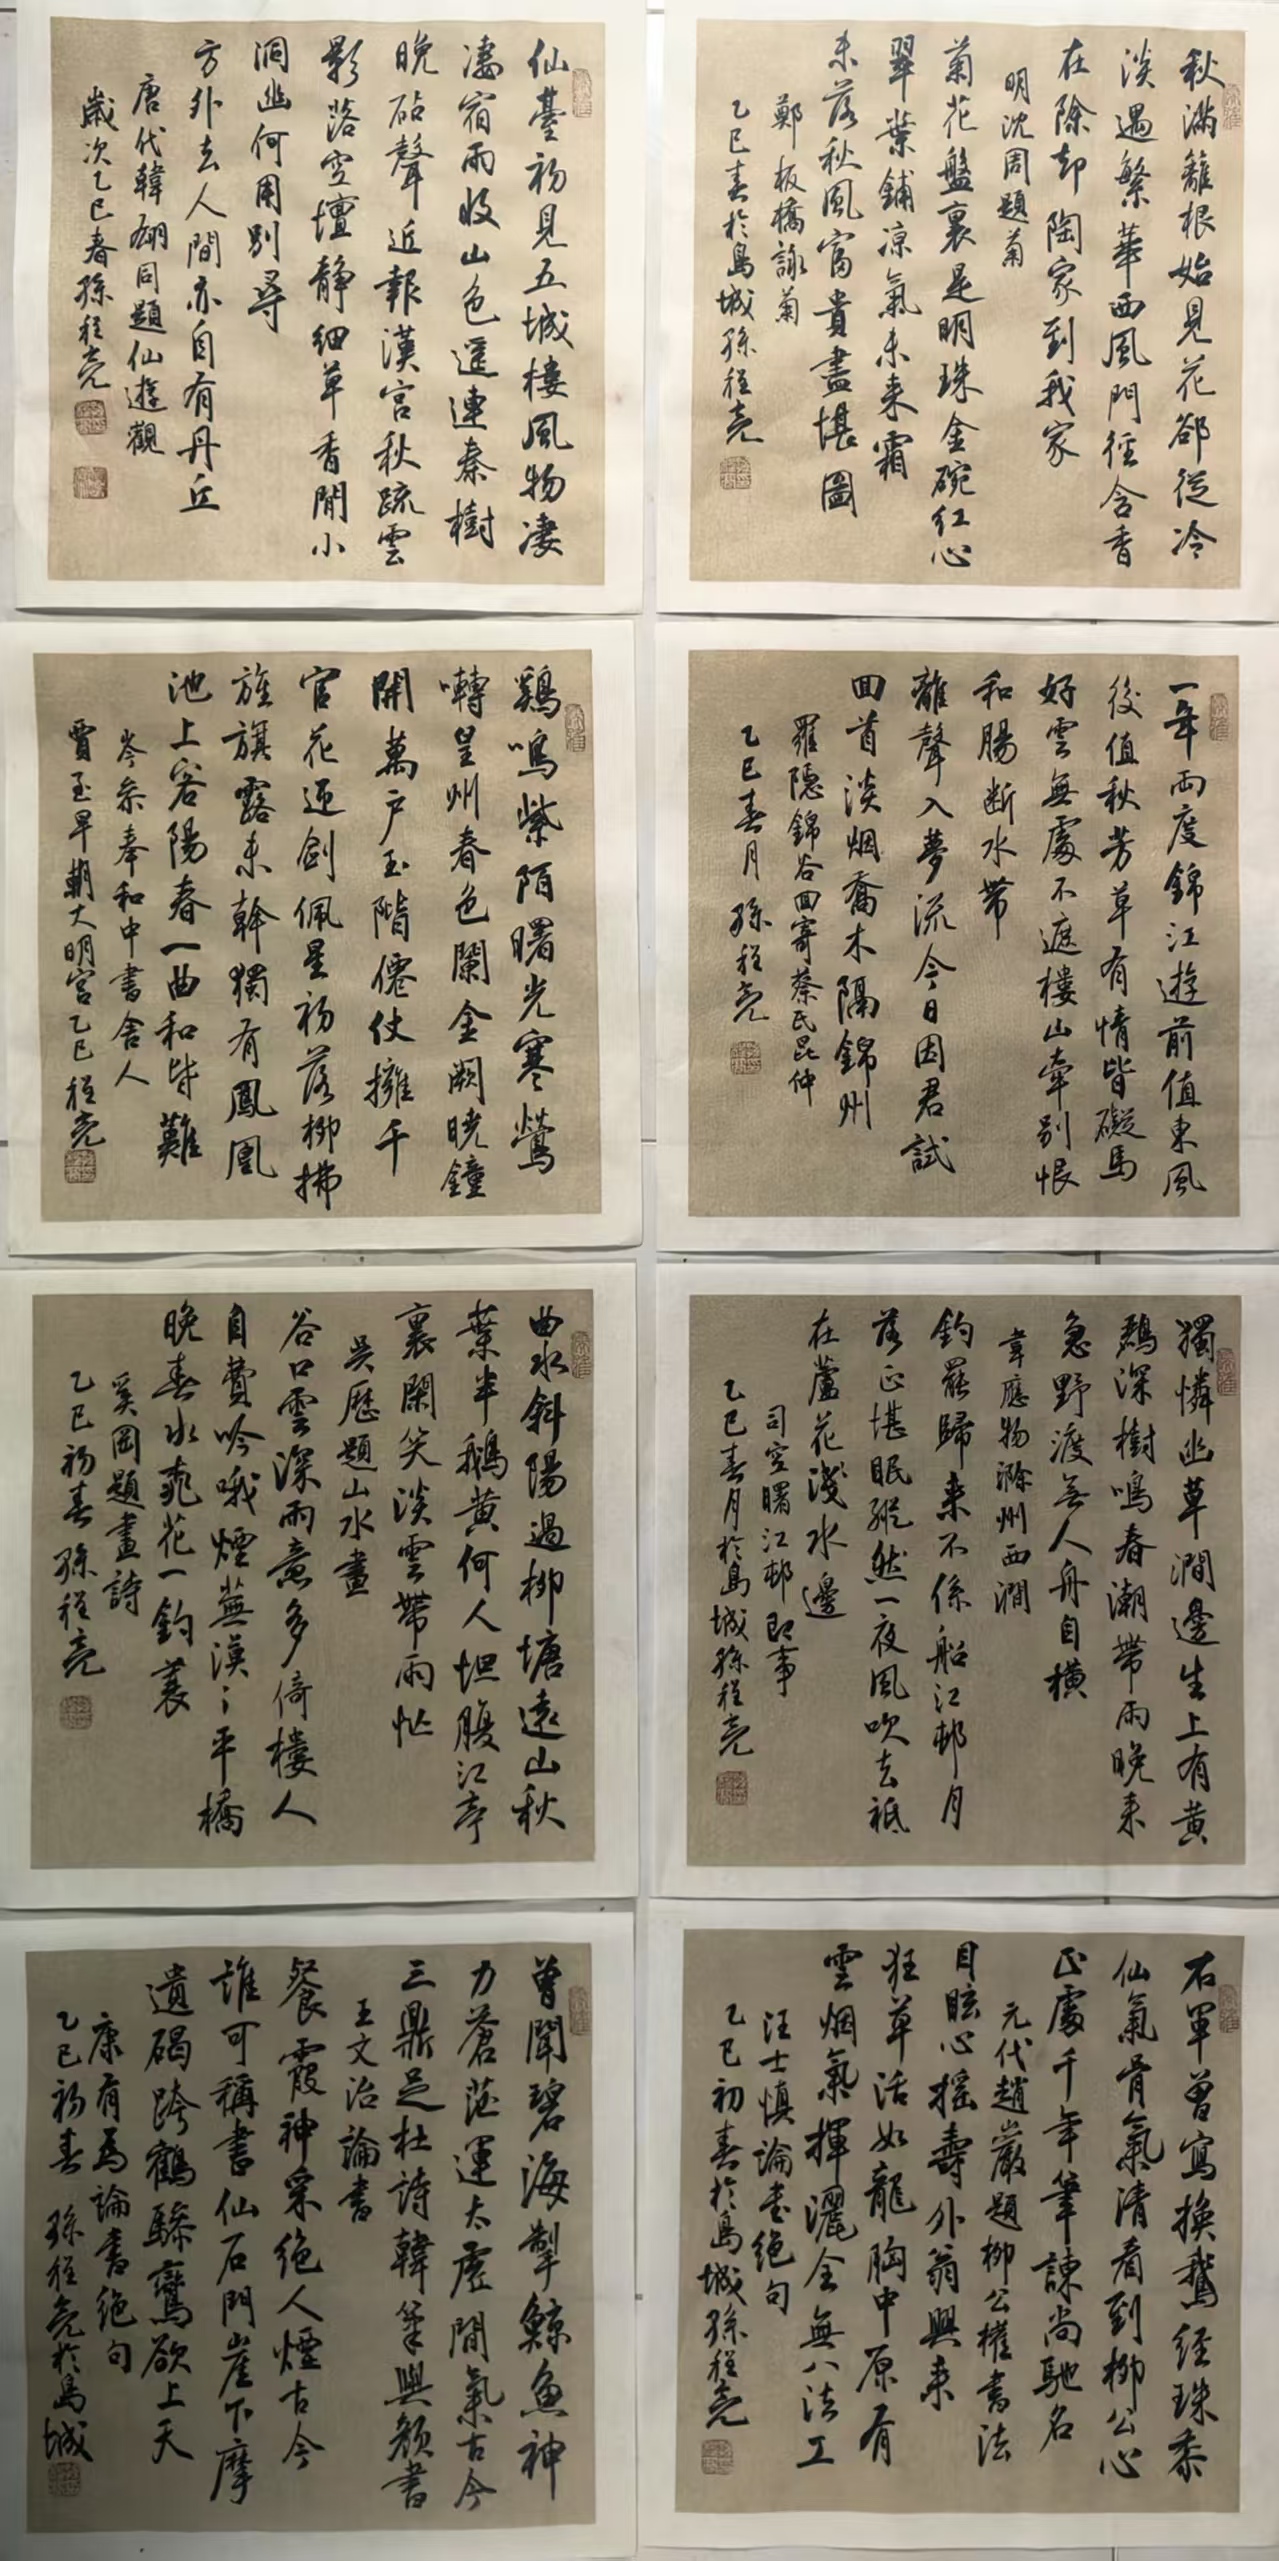 秋滿籬根始見花卻從冷
淡遇繁華西風門徑含香
在除却陶家到我家
明沈周題菊
菊花盤裏是明珠金碗紅心
翠葉鋪凉氣未來霜
未落秋風富貴盡堪圖
鄭板橋詠菊
乙巳春於島城孫程亮
仙臺初見五城樓風物凄
凄宿雨收山色遥連秦樹
晚砧聲近報漢宮秋疏雲
影落空壇靜細草香閒小
洞幽何用別尋
方外去人間亦自有丹丘
唐代韓翃同題仙遊觀
歲次乙巳春孫程亮
一年兩度錦江遊前值東風
後值秋芳草有情皆礙馬
好雲無處不遮樓山牽別恨
和腸断水帶
離聲入夢流今日因君試
回首淡烟喬木隔錦州
羅隱錦谷回寄蔡氏昆仲
乙巳春月孫程亮
鷄鳴紫陌曙光寒鶯
囀皇州春色闌金闕曉鐘
開萬户玉階僊仗擁千
官花迎劍佩星初落柳拂
旌旗露未幹獨有鳳凰
池上客陽春一曲和皆難
岑參奉和中書舍人
賈至早朝大明宮乙巳程亮
獨憐幽草澗邊生上有黄
鸝深樹鳴春潮帶雨晚来
急野渡無人舟自横
韋應物滁州西澗
釣罷歸来不係船江邨月
落正堪眠縱然一夜風吹去祗
在蘆花淺水邊
司空曙江邨即事
乙巳春月於島城孫程亮
曲水斜陽過柳塘遠山秋
葉半鵝黄何人坦腹江亭
裏閑笑淡雲帶雨忙
吴歷題山水畫
谷口雲深雨意多倚樓人
自費吟哦煙蕪漠〻平橋
晚春水飛花一釣蓑
奚岡題畫詩
乙巳初春孫程亮
右軍曾寫换鵝經珠黍
仙氣骨氣清看到柳公心
正處千年筆諫尚馳名
元代趙巖題柳公權書法
目眩心摇壽外翁興来
狂草活如龍胸中原有
雲烟氣揮灑全無八法工
汪士慎論書絶句
乙巳初春於島城孫程亮
曾聞碧海掣鯨魚神
力蒼茫運太虚間氣古今
三鼎足杜詩韓筆與顔書
王文治論書
餐霞神采絶人煙古今
誰可稱書仙石門崖下摩
遺碣跨鶴驂鸞欲上天
康有為論書絶句
乙巳初春孫程亮於島城